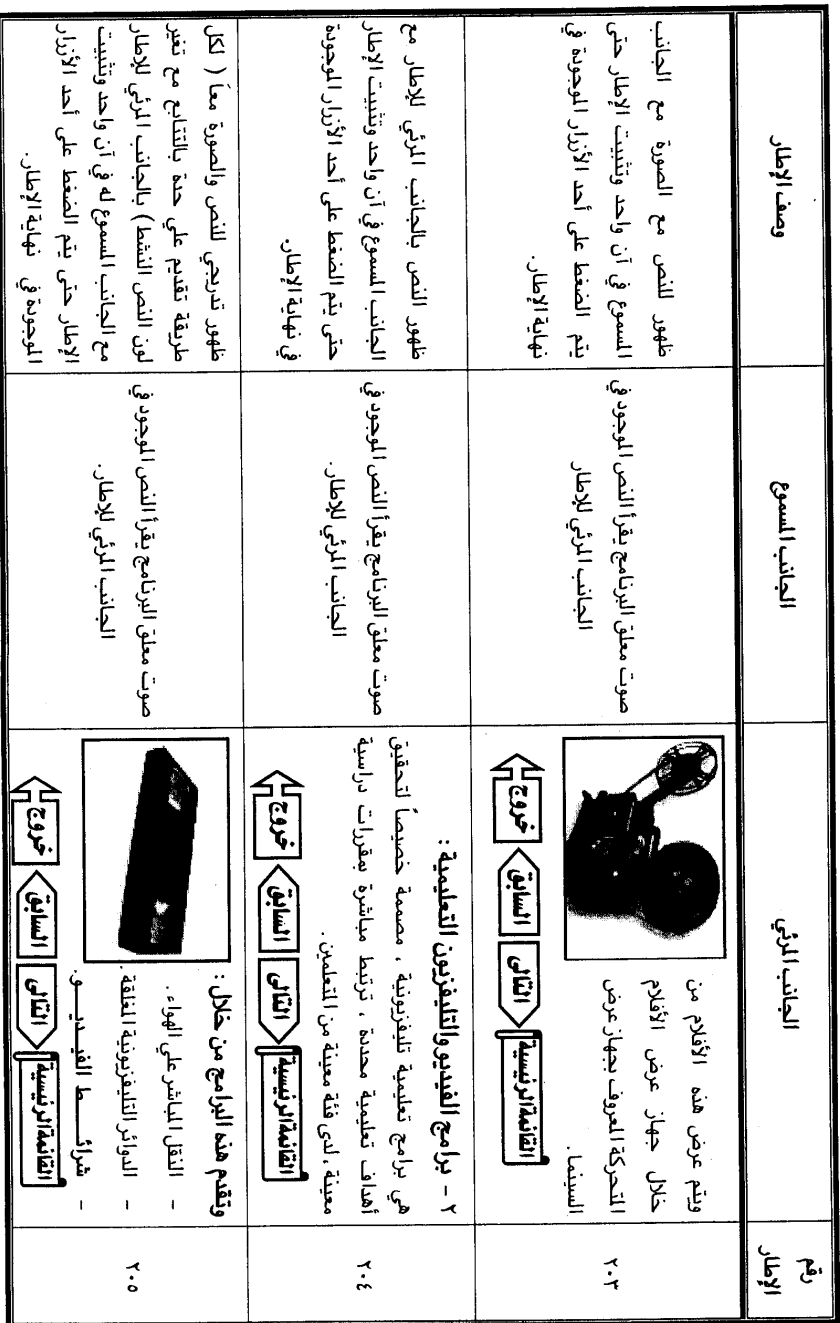 رقم
الإطار
الجانب المرئي
الجانب المسموع
وصف الإطار
٢٠٣
ويتم عرض هذه الأفلام من
خلال جهاز عرض الأفلام
المتحركة المعروف بجهاز عرض
السينما.
القائمة الرئيسية
التالى
السابق
خروج
صوت معلق البرنامج يقرأ النص الموجود في
الجانب المرئي للإطار
ظهور للنص مع الصورة مع الجانب
المسموع في آن واحد وتثبيت الإطار حتى
يتم الضغط على أحد الأزرار الموجودة في
نهاية الإطار.
٢٠٤
٢ - برامج الفيديو والتليفزيون التعليمية :
هي برامج تعليمية تليفزيونية ، مصممة خصيصاً لتحقيق
أهداف تعليمية محددة ، ترتبط مباشرة بمقررات دراسية
معينة ، لدى فئة معينة من المتعلمين .
القائمة الرئيسية
التالى
السابق
خروج
صوت معلق البرنامج يقرأ النص الموجود في
الجانب المرئي للإطار.
ظهور النص بالجانب المرئي للإطار مع
الجانب المسموع في آن واحد وتثبيت الإطار
حتى يتم الضغط على أحد الأزرار الموجودة
في نهاية الإطار.
٢٠٥
وتقدم هذه البرامج من خلال :
- النقل المباشر علي الهواء .
- الدوائر التليفزيونية المغلقة .
- شرائط الفيديو.
القائمة الرئيسية
التالى
السابق
خروج
صوت معلق البرنامج يقرأ النص الموجود في
الجانب المرئي للإطار.
ظهور تدريجي للنص والصورة معاً ( لكل
طريقة تقديم علي حدة بالتتابع مع تغير
لون النص النشط ) بالجانب المرئي للإطار
مع الجانب المسموع له في آن واحد وتثبيت
الإطار حتى يتم الضغط على أحد الأزرار
الموجودة في نهاية الإطار.